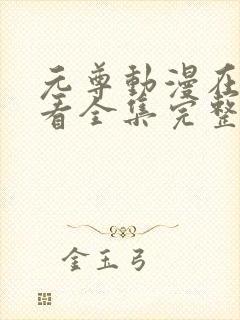 元尊動漫在
看全集完整
金玉弓